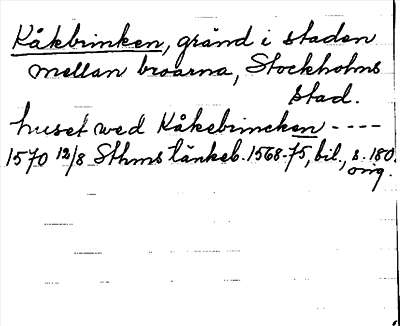 Kåkbrinken, gränd i staden
mellan broarna, Stockholms
stad.
huset wed Kåkebrincken ----
1570 12/8 Sthms tänkeb. 1568-75, bil., s. 180.
orig.